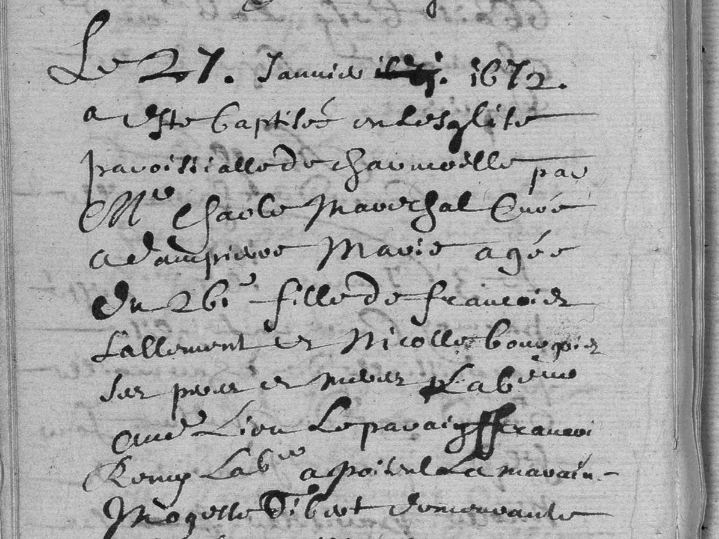 Le 27. Januier 1672.
a este baptisée en lesglise
paroissialle de charmoille par
Mre Charle Marechal Curé
a dampierre Marie agée
du 26e fille de francois
Lallement et Nicolle bourgois
ses pere et mere Lab
aud Lieu Le parain francoi
Remy Lab a poiseul La marain
Mogette Sibert demeurante